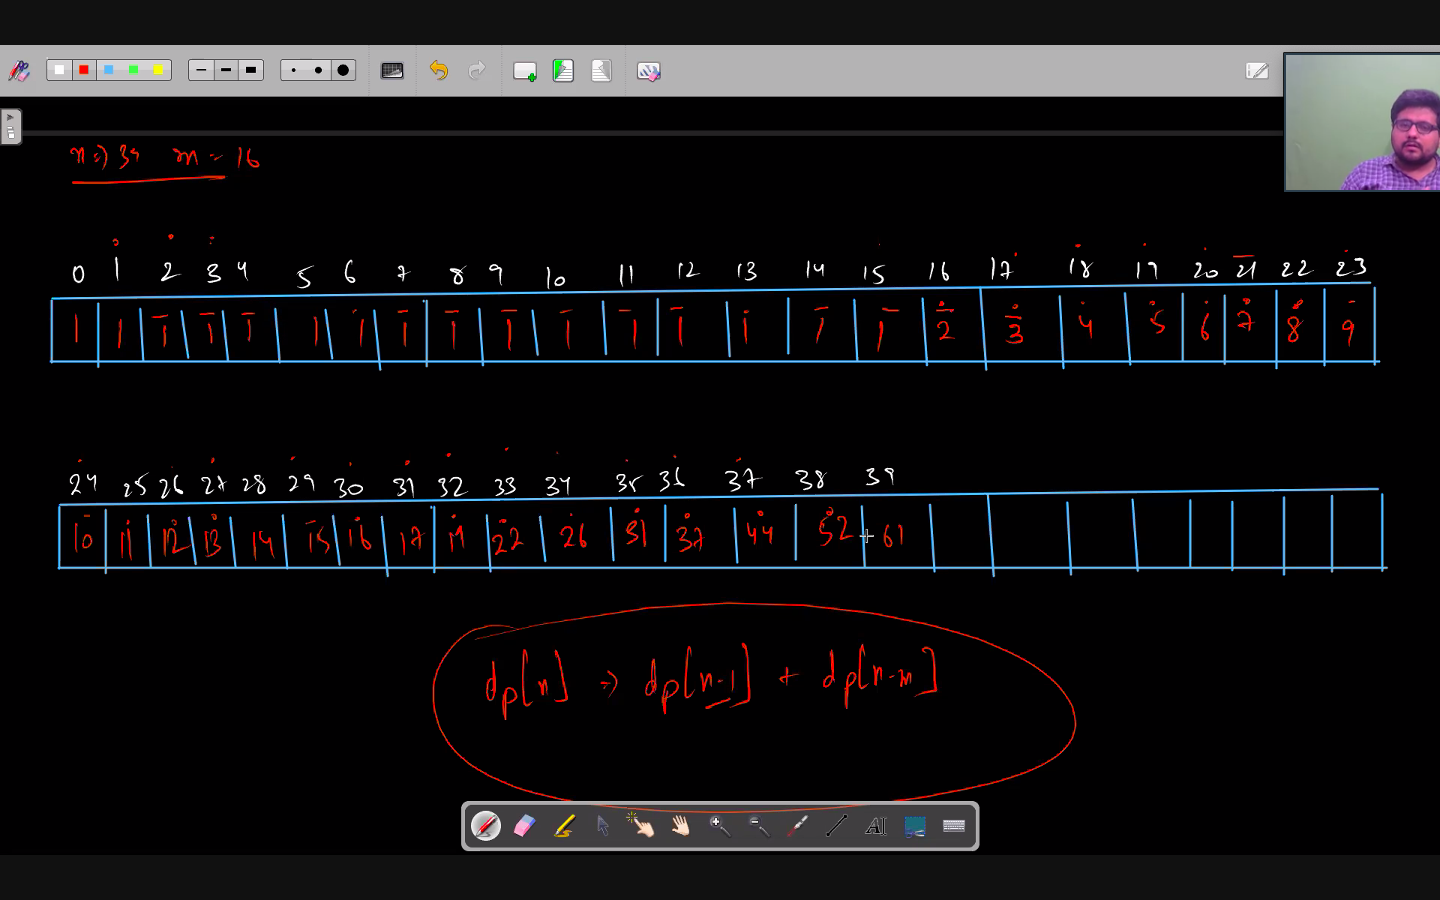 n=) 39 m = 16
0 1 2 3 4 5 6 7 8 9 10 11 12 13 14 15 16 17 18 19 20 21 22 23
1 1 1 1 1 1 1 1 1 1 1 1 1 1 1 1 2 3 4 5 6 7 8 9
24 25 26 27 28 29 30 31 32 33 34 35 36 37 38 39
10 11 12 13 14 15 16 17 19 22 26 31 37 44 52 61
dp[n] => dp[n-1] + dp[n-m]
AI